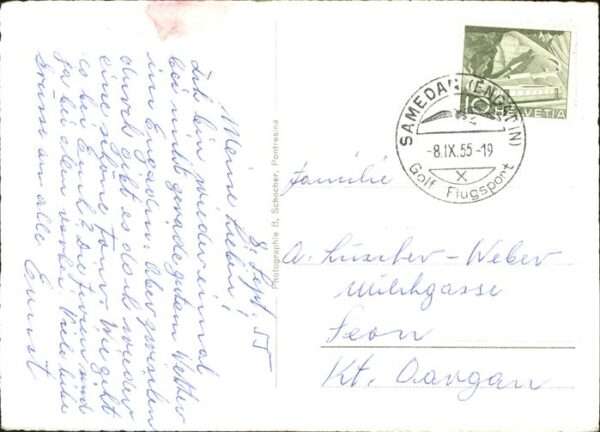 8. Sept. 55
Meine Lieben!
Ich bin wieder einmal
bei nicht gerade gutem Wetter
im Engadin. Aber zwischen
durch gibt es doch wieder
eine schöne Tour. Wie geht
es bei Euch? Die Ferien sind
ja bei allen vorbei. Viele liebe
an alle Ernst
Photographie B. Schocher, Pontresina
HELVETIA
10
SAMEDAN (ENGADIN)
-8.IX.55-19
Golf Flugsport
Familie
A. Lüscher-Weber
Milchgasse
Seon
Kt. Aargau